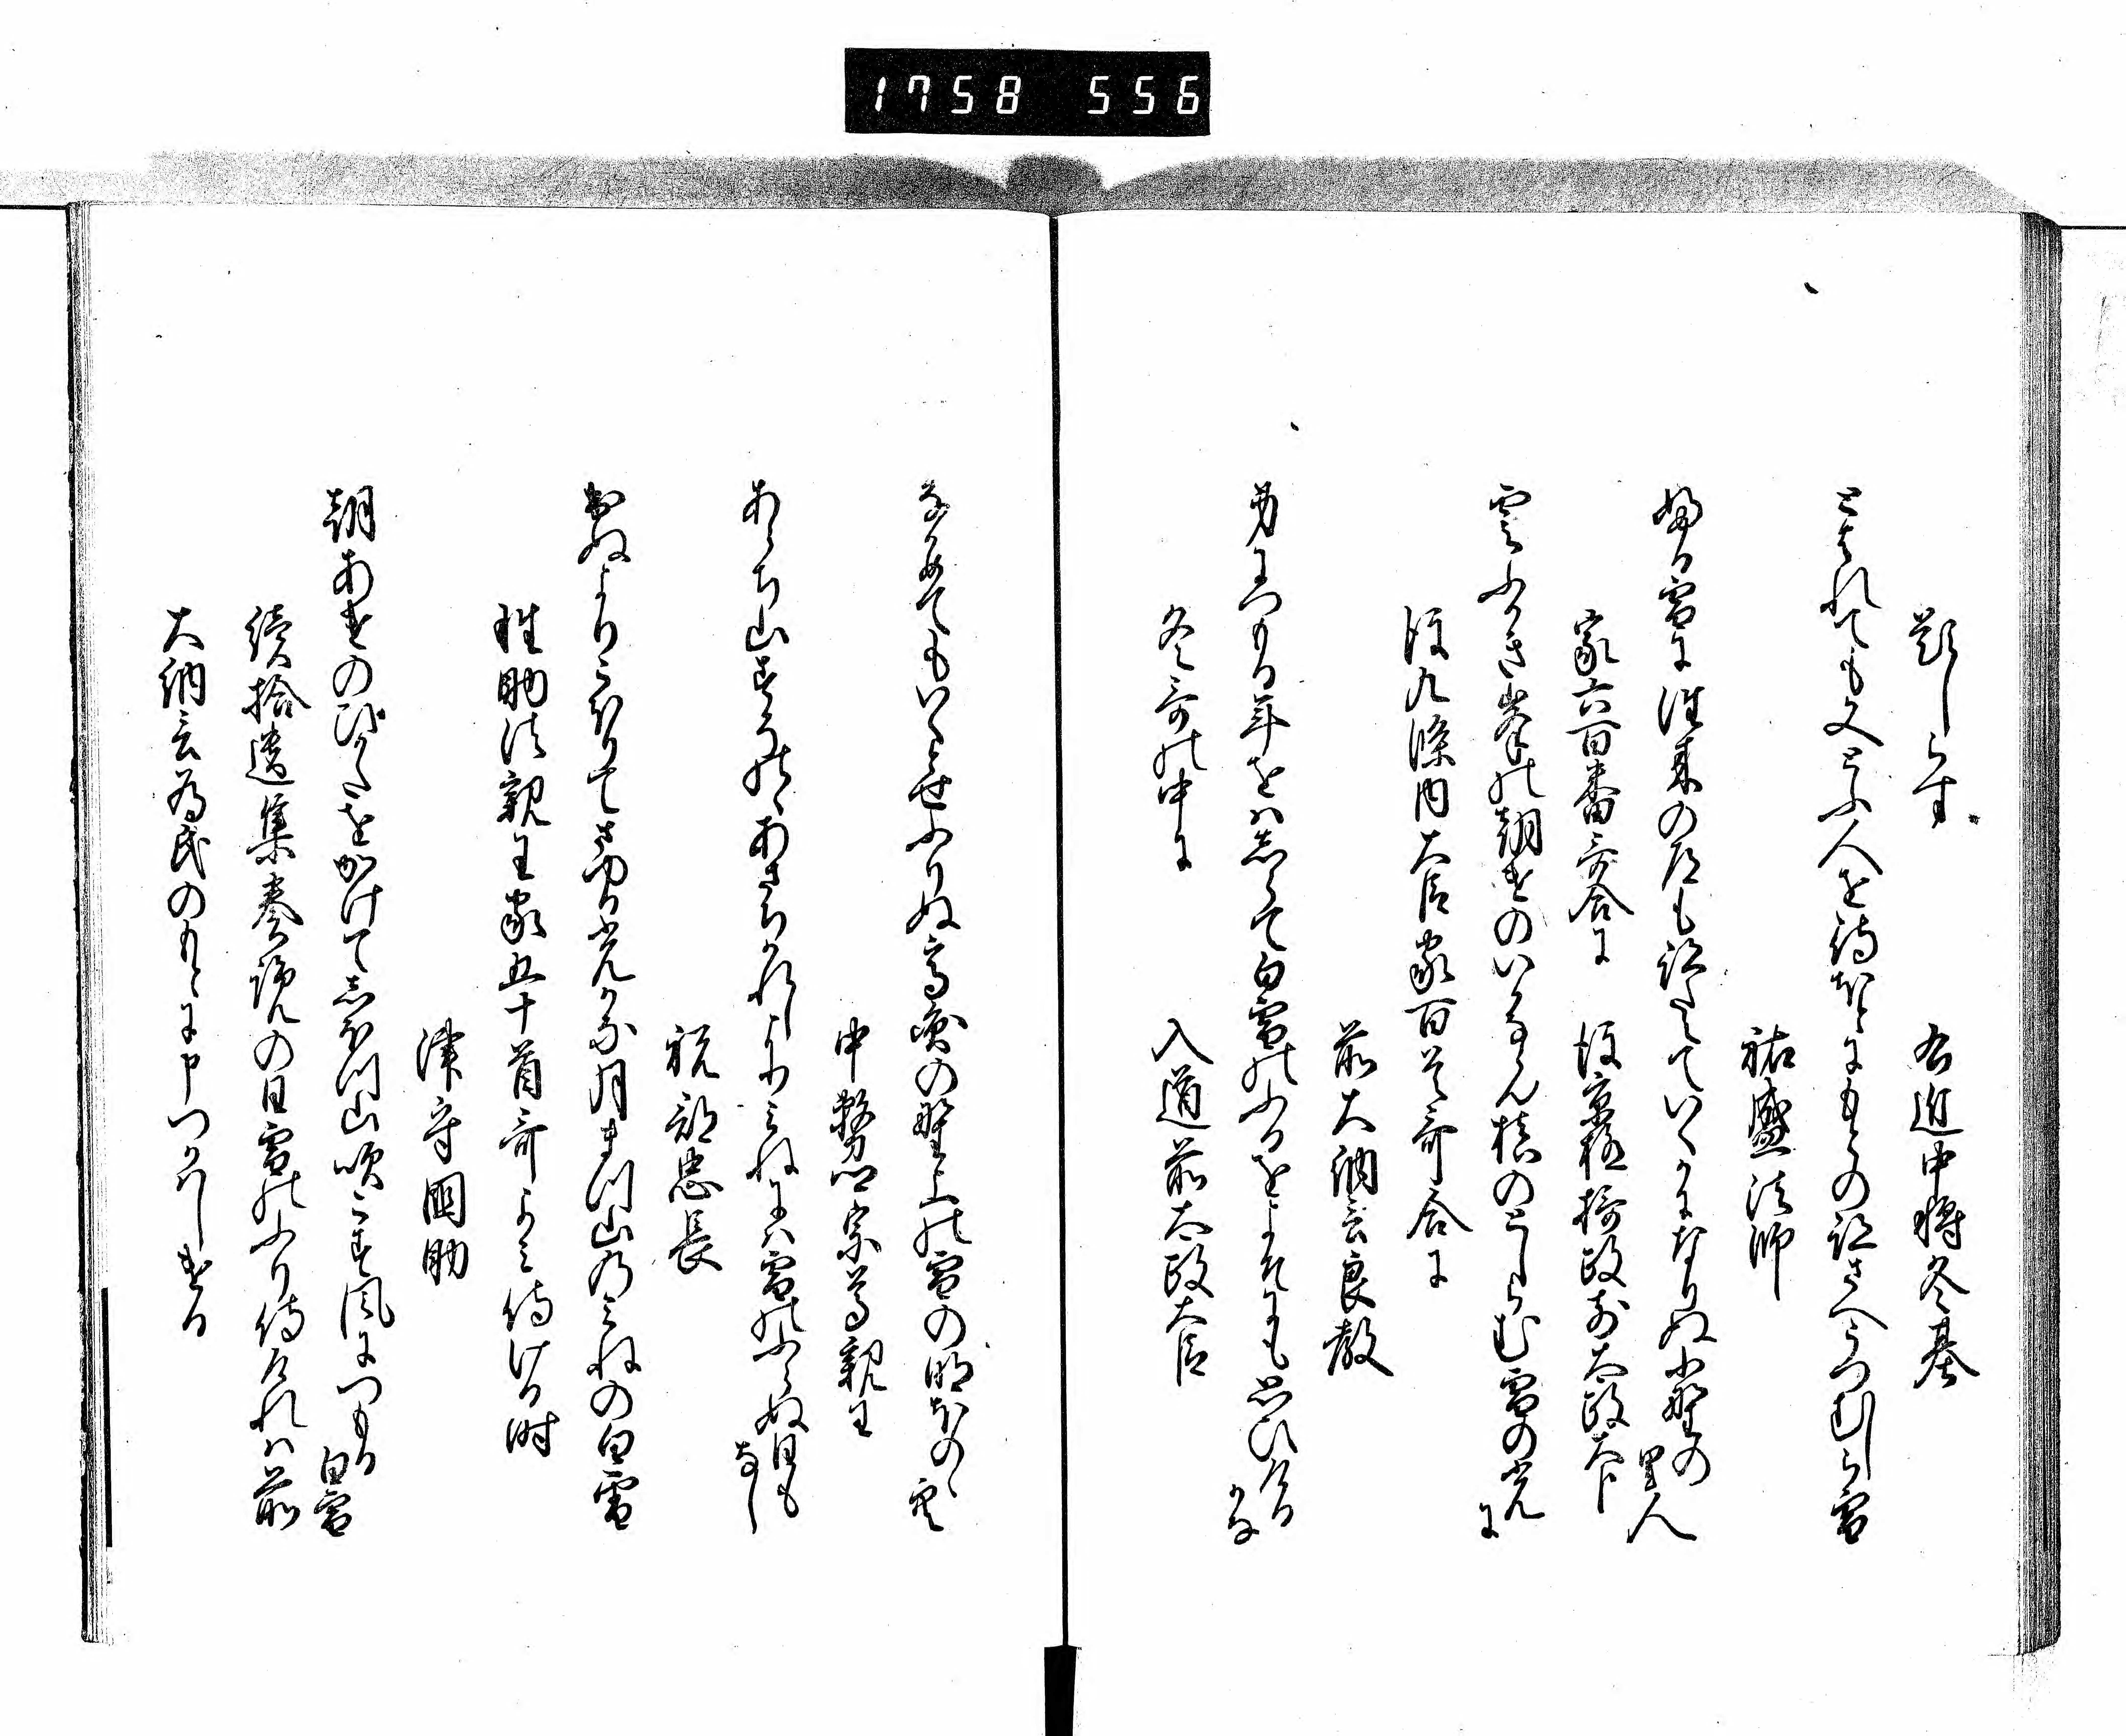 1758 556
題しらす
右近中将冬基
とはれても又とふ人を待ほとにもとの跡さへうつむしら雪
祐盛法師
ふる雪に往来の道も跡たえていくかになりぬ小野の里人
家六百番哥合に
後京極摂政前太政大臣
雲ふかき峯の朝けのいかならん槙のとしらむ雪の光に
後九條内大臣家百首哥合に
前大納言良教
身につもる年をはしらて白雪のふるをよそにも思ひける
かな
冬哥の中に
入道前太政大臣
なかめてもいくとせふりぬ高圓の野上の雪の明ほのゝ空
中務卿宗尊親王
あらち山すそのゝあさちかれしよりみねには雪のふらぬ日も
なし
祝部忠長
出ぬよりこほりてさゆる光かな月まつ山のみねの白雪
性助法親王家五十首哥よみ侍ける時
津守國助
朝あけのひかたをかけてしほつ山吹こす風につもる
白雪
續拾遺集奏覧の日雪のふり侍けれは前
大納言為氏のもとに申つかはしける